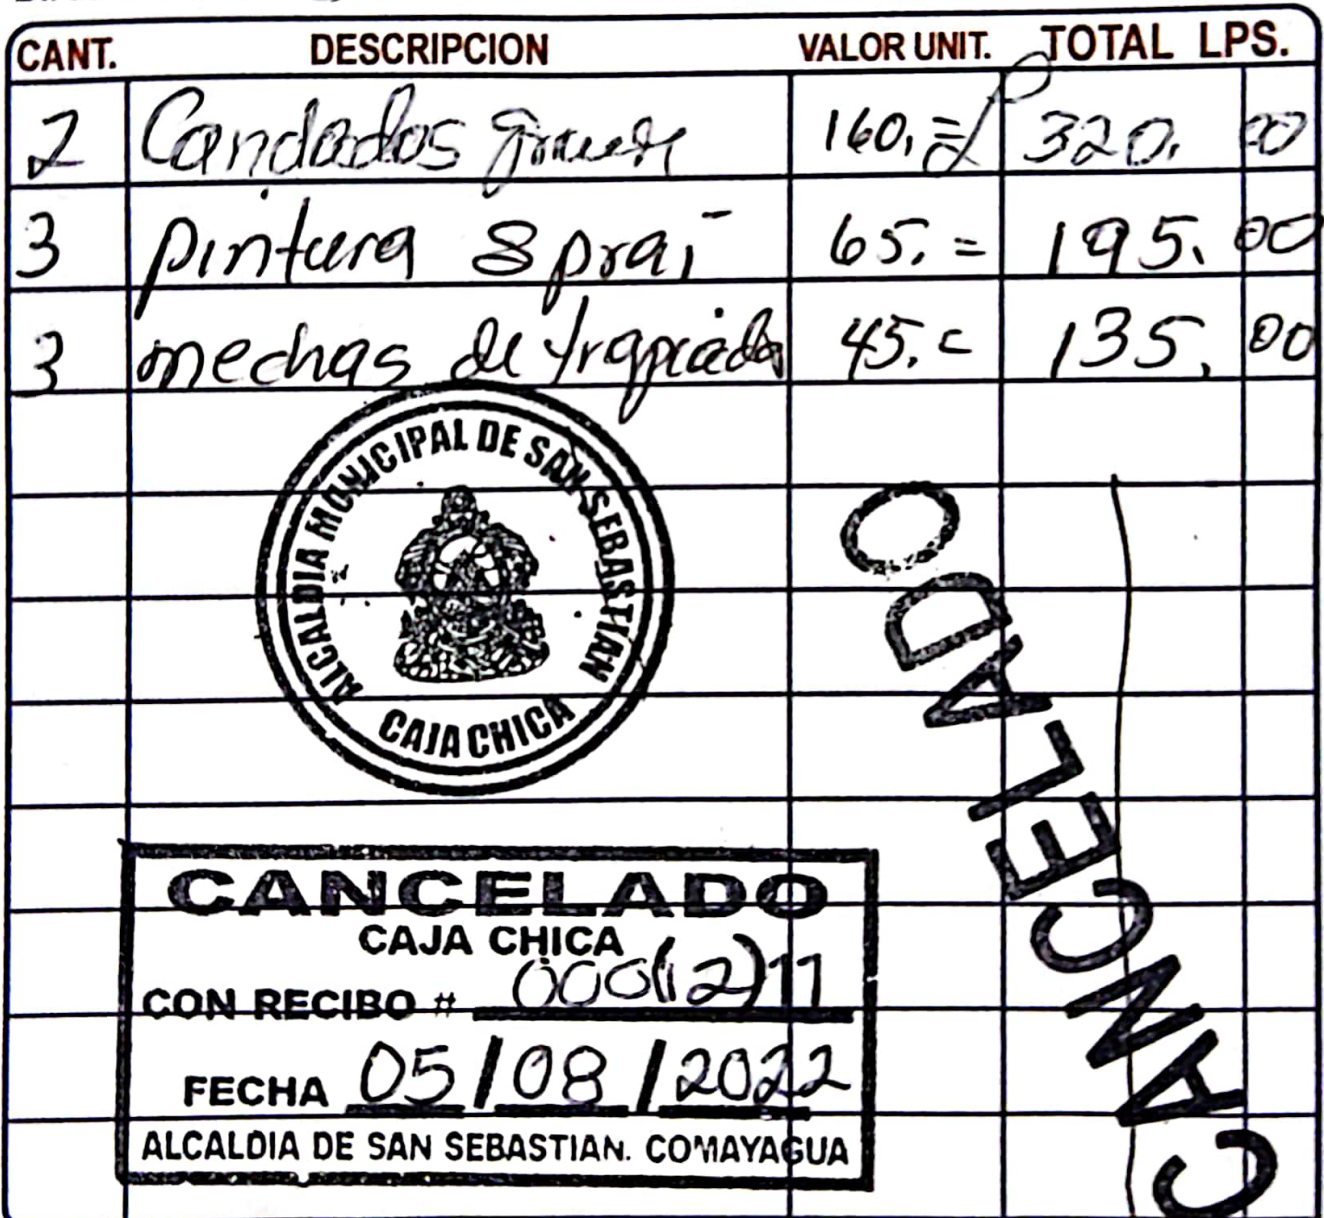 CANT. DESCRIPCION VALOR UNIT. TOTAL LPS.
2 Candados 160.= L 320. 00
3 pintura Sprai 65.= 195. 00
3 mechas de trapiador 45.= 135. 00
ALCALDIA MUNICIPAL DE SAN SEBASTIAN
CAJA CHICA
CANCELADO
CANCELADO
CAJA CHICA
CON RECIBO # 000(12)11
FECHA 05/08/2022
ALCALDIA DE SAN SEBASTIAN. COMAYAGUA